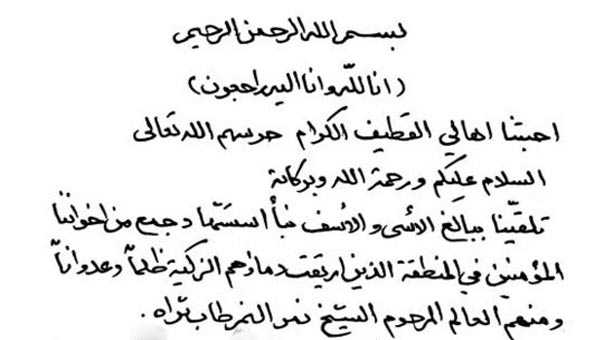 بسم الله الرحمن الرحيم
(انا لله وانا اليه راجعون)
احبتنا اهالي القطيف الكرام حرسهم الله تعالى
السلام عليكم ورحمة الله وبركاته
تلقّينا ببالغ الأسى والأسف نبأ استشهاد جمع من اخواننا
المؤمنين في المنطقة الذين اريقت دماؤهم الزكية ظلماً وعدواناً
ومنهم العالم المرحوم الشيخ نمر النمر طاب ثراه.